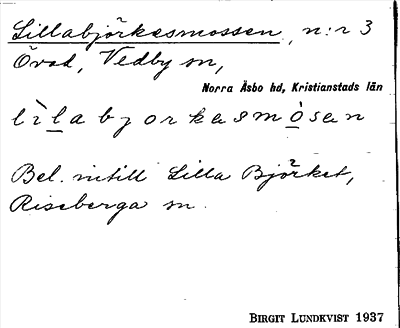 Lillabjörkesmossen, n:r 3
Övad, Vedby sn,
Norra Åsbo hd, Kristianstads län
lìlabjorkesmòsen
Bel. intill Lilla Björket,
Riseberga sn.
BIRGIT LUNDKVIST 1937